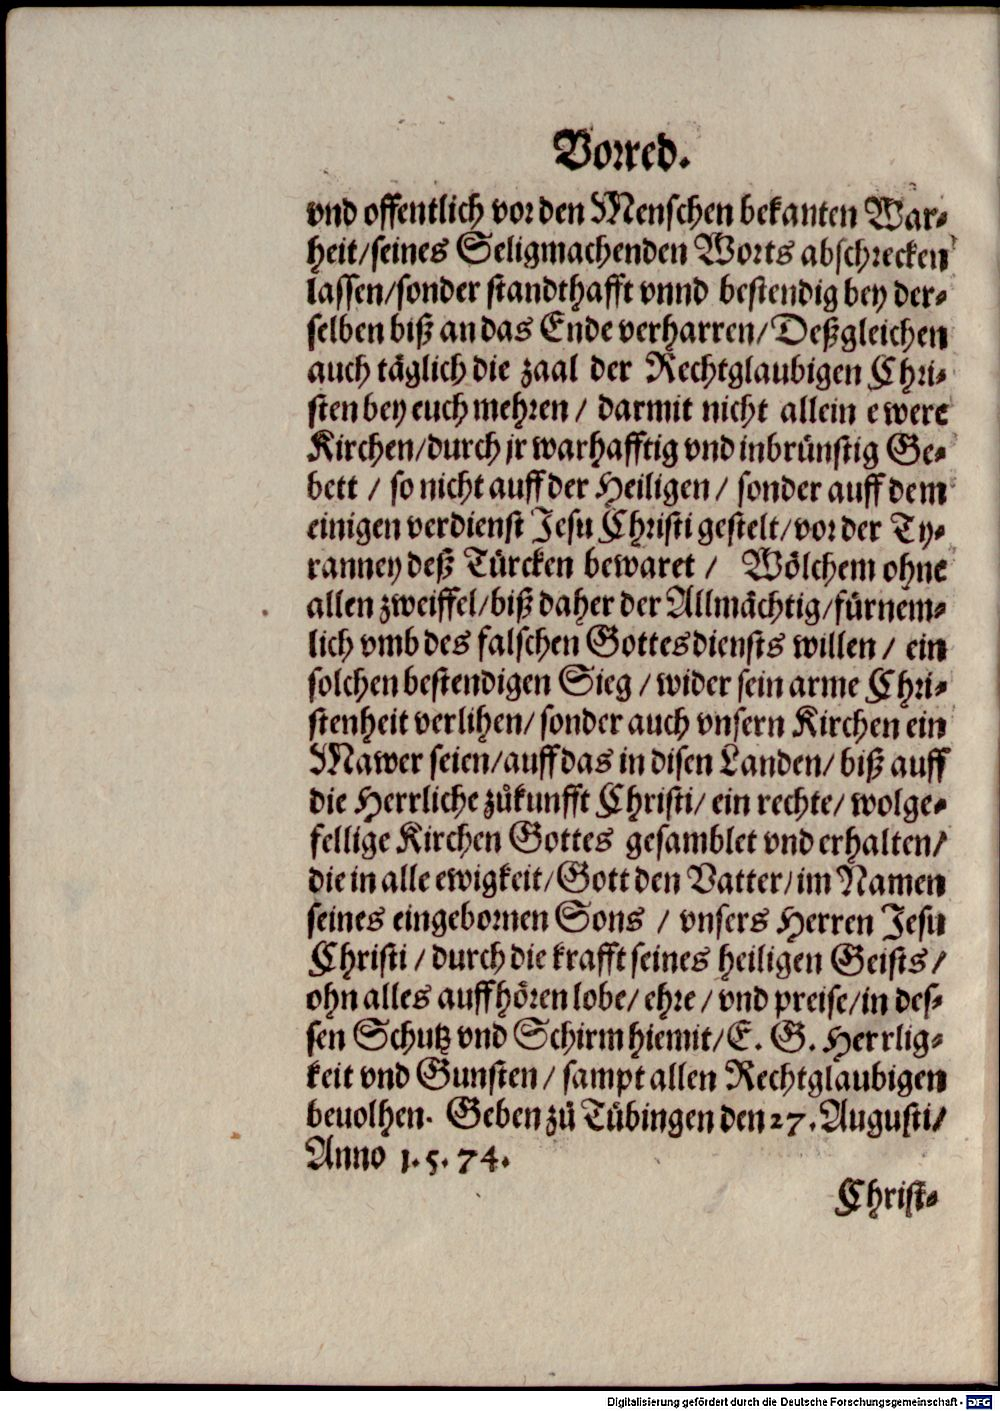 Vorred.
vnd offentlich vor den Menschen bekanten War-
heit/seines Seligmachenden Worts abschrecken
lassen/sonder standthafft vnnd bestendig bey der-
selben biß an das Ende verharren/Deßgleichen
auch täglich die zaal der Rechtglaubigen Chri-
sten bey euch mehren / darmit nicht allein ewere
Kirchen/durch jr warhafftig vnd inbrünstig Ge-
bett / so nicht auff der Heiligen / sonder auff dem
einigen verdienst Jesu Christi gestelt/vor der Ty-
ranney deß Türcken bewaret / Wölchem ohne
allen zweiffel/biß daher der Allmächtig/fürnem-
lich vmb des falschen Gottesdiensts willen / ein
solchen bestendigen Sieg / wider sein arme Chri-
stenheit verlihen/ sonder auch vnsern Kirchen ein
Mawer seien/auff das in disen Landen/ biß auff
die Herrliche zůkunfft Christi/ ein rechte/ wolge-
fellige Kirchen Gottes gesamblet vnd erhalten/
die in alle ewigkeit/Gott den Vatter/im Namen
seines eingebornen Sons / vnsers Herren Jesu
Christi / durch die krafft seines heiligen Geists/
ohn alles auffhören lobe/ ehre / vnd preise/in des-
sen Schutz vnd Schirm hiemit/E. G. Herrlig-
keit vnd Gunsten / sampt allen Rechtglaubigen
beuolhen. Geben zů Tübingen den 27. Augusti/
Anno 1.5.74.
Christ-
Digitalisierung gefördert durch die Deutsche Forschungsgemeinschaft - DFG